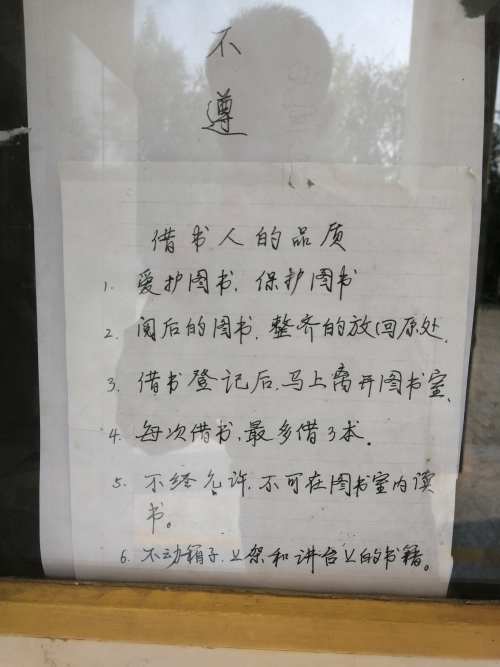 不
遵
借书人的品质
1. 爱护图书、保护图书
2. 阅后的图书、整齐的放回原处、
3. 借书登记后、马上离开图书室、
4. 每次借书、最多借3本.
5. 不经允许、不可在图书室内读
书。
6. 不动箱子、上架和讲台上的书籍。